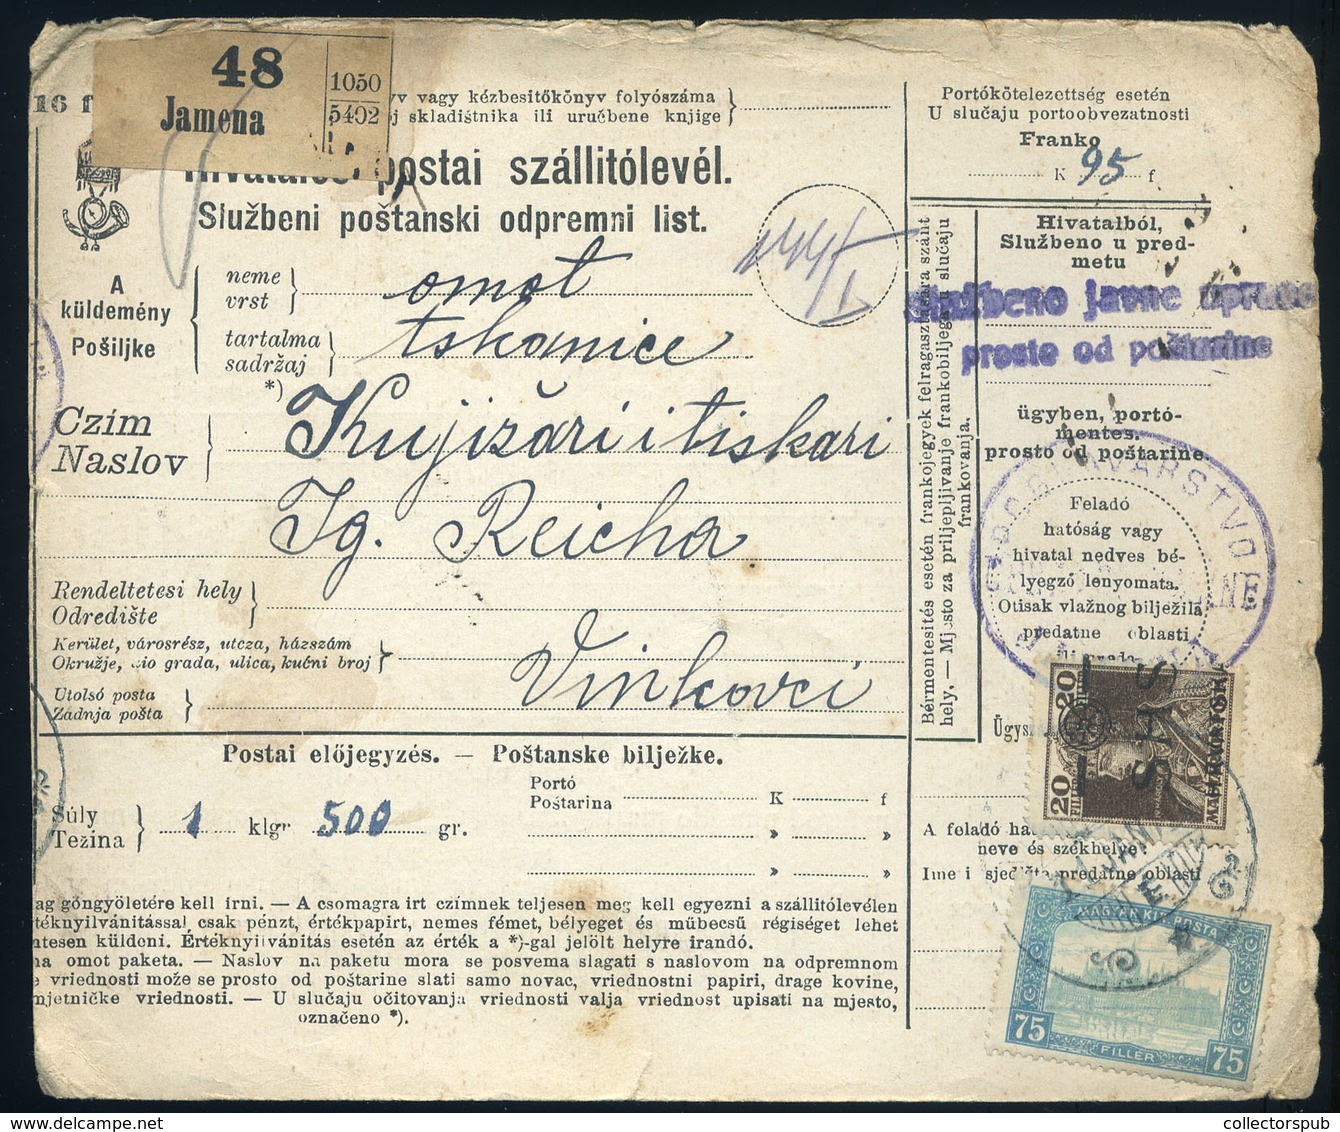 48
Jamena
1050
5402
16 f
vagy kézbesitőkönyv folyószáma
skladištnika ili uručbene knjige
postai szállitólevél.
Službeni poštanski odpremni list.
A
küldemény
Pošiljke
neme
vrst
omot
tartalma
sadržaj
*)
tskanice
Czím
Naslov
Knjižari i tiskari
Ig. Reicha
Rendeltetesi hely
Odredište
Kerület, városrész, utcza, házszám
Okružje, dio grada, ulica, kućni broj
Vinkovci
Utolsó posta
Zadnja pošta
Postai előjegyzés. — Poštanske bilježke.
Súly
Težina
1 klgr 500 gr.
Portó
Poštarina
K f
» »
» »
ag göngyöletére kell írni. — A csomagra irt czímnek teljesen meg kell egyezni a szállitólevélen
téknyilvánitással csak pénzt, értékpapirt, nemes fémet, bélyeget és mübecsü régiséget lehet
ntesen küldeni. Értéknyilvánitás esetén az érték a *)-gal jelölt helyre irandó.
na omot paketa. — Naslov na paketu mora se posvema slagati s naslovom na odpremnom
e vriednosti može se prosto od poštarine slati samo novac, vriednostni papiri, drage kovine,
mjetničke vriednosti. — U slučaju očitovanja vriednosti valja vriednost upisati na mjesto,
označeno *).
Portókötelezettség esetén
U slučaju portoobvezatnosti
Franko
K 95 f
Bérmentesités esetén frankojegyek felragasztására szánt
hely. — Mjesto za priljepljivanje frankobiljega u slučaju
frankovanja.
Hivatalból,
Službeno u pred-
metu
Službeno javne uprave
prosto od poštarine
ügyben, portó-
mentes.
prosto od poštarine
Feladó
hatóság vagy
hivatal nedves bé-
lyegző lenyomata.
Otisak vlažnog bilježila
predatne oblasti
ili ureda
Ügysz
20 20
FILLÉR
MAGYAR POSTA
SHS
A feladó ha
neve és székhelye:
Ime i sjedište predatne oblasti
MAGYAR KIR. POSTA
75 FILLÉR 75
collectorspub